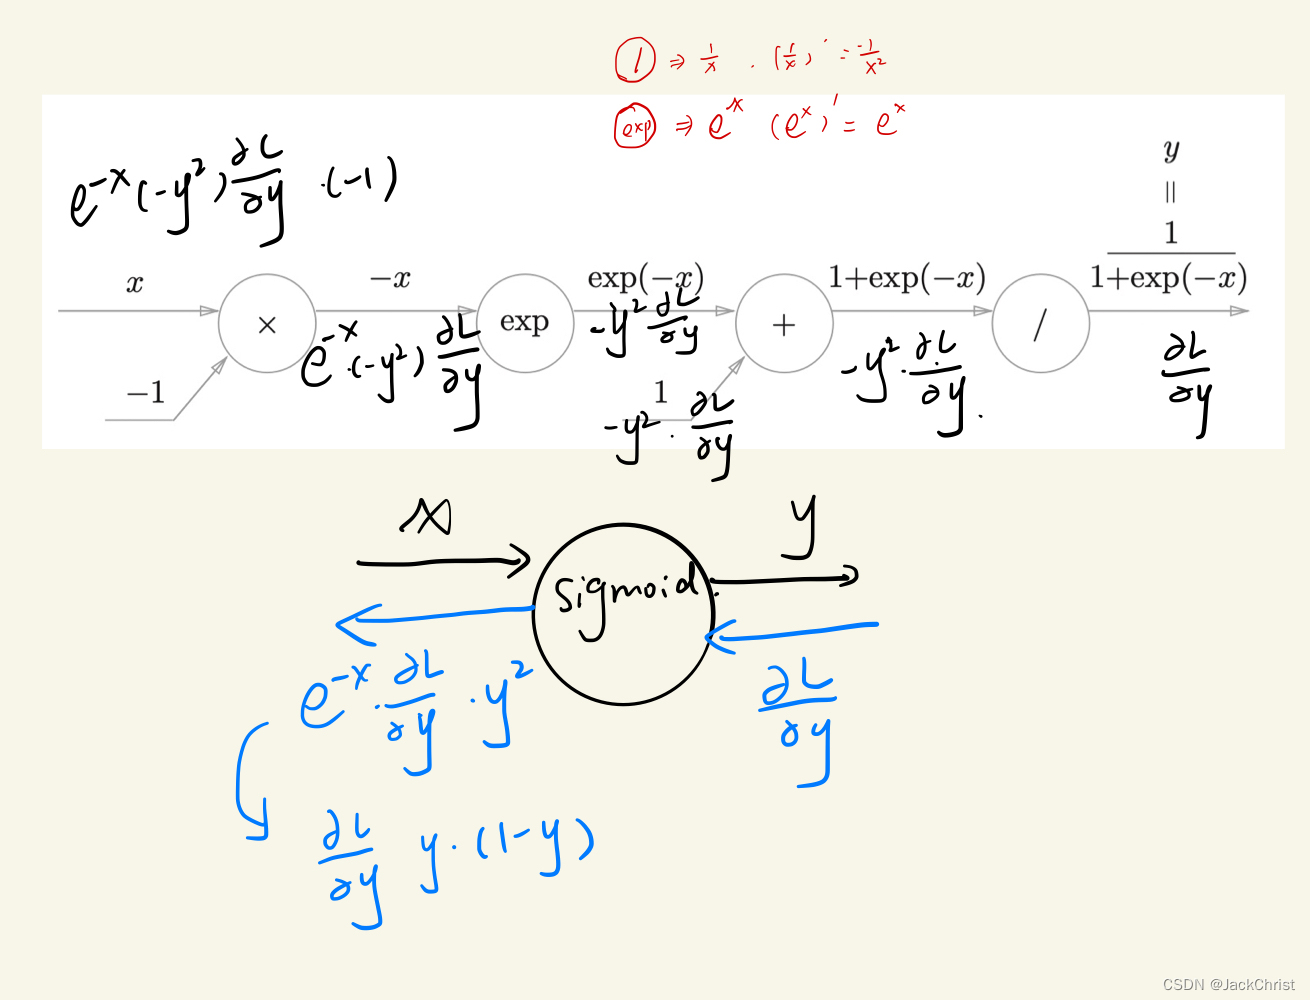 / ⇒ 1/x . (1/x)' = -1/x²
exp ⇒ e^x (e^x)' = e^x
y
||
1
1+exp(−x)
e^-x (-y²) ∂L/∂y ·(-1)
x
×
−x
exp
exp(−x)
+
1+exp(−x)
/
−1
1
e^-x ·(-y²) ∂L/∂y
-y² ∂L/∂y
-y² · ∂L/∂y
-y² · ∂L/∂y .
∂L/∂y
x
y
sigmoid
e^-x · ∂L/∂y · y²
∂L/∂y
∂L/∂y y·(1-y)
CSDN @JackChrist